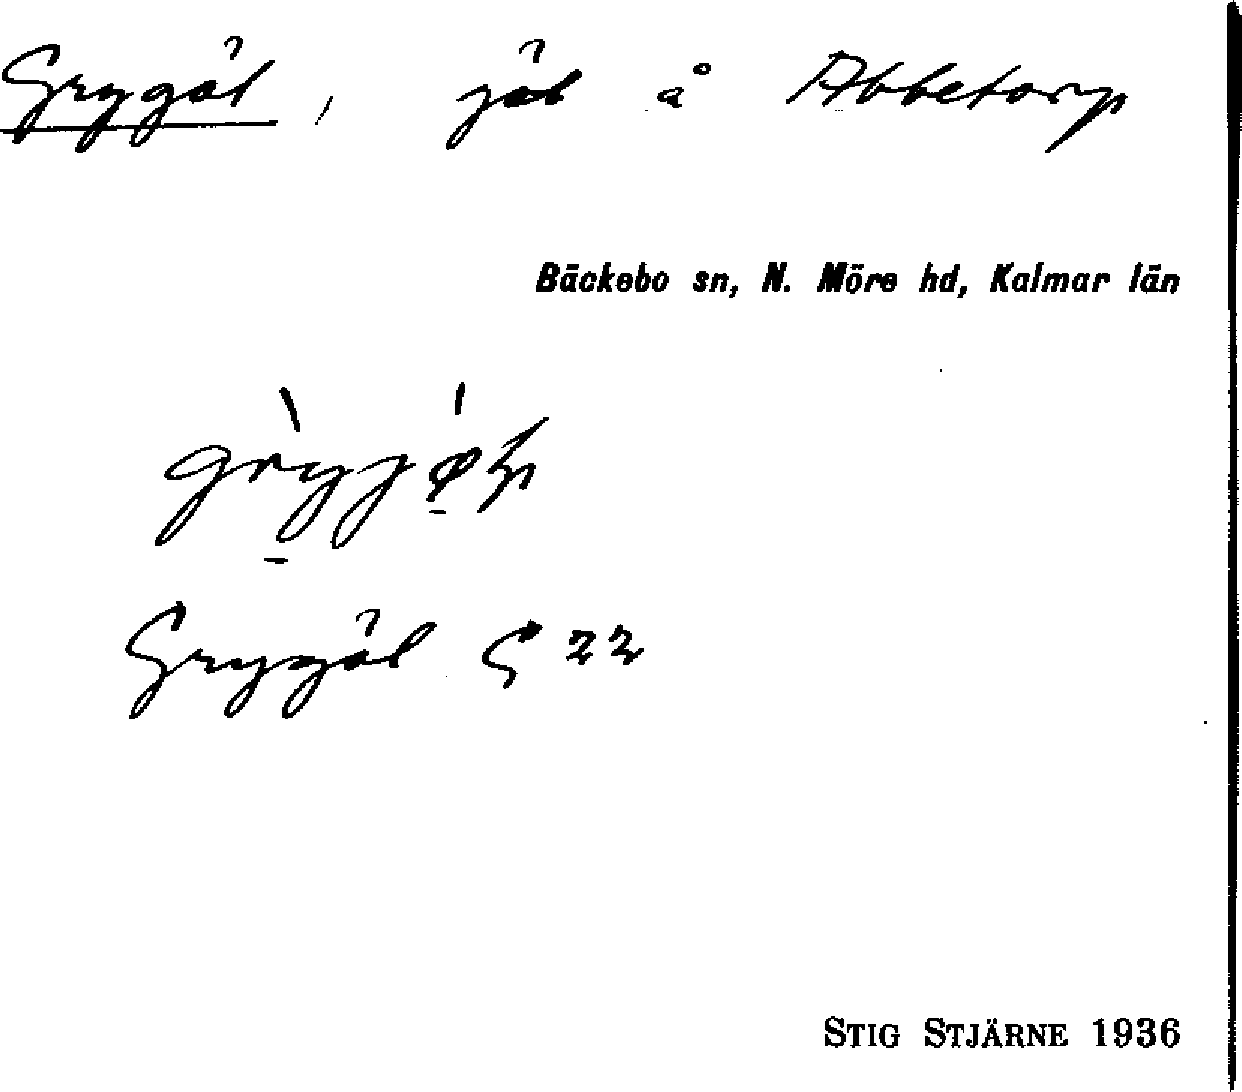 Grygöl, göl å Abbetorp
Bäckebo sn, N. Möre hd, Kalmar län
Grygöl G 22
STIG STJÄRNE 1936